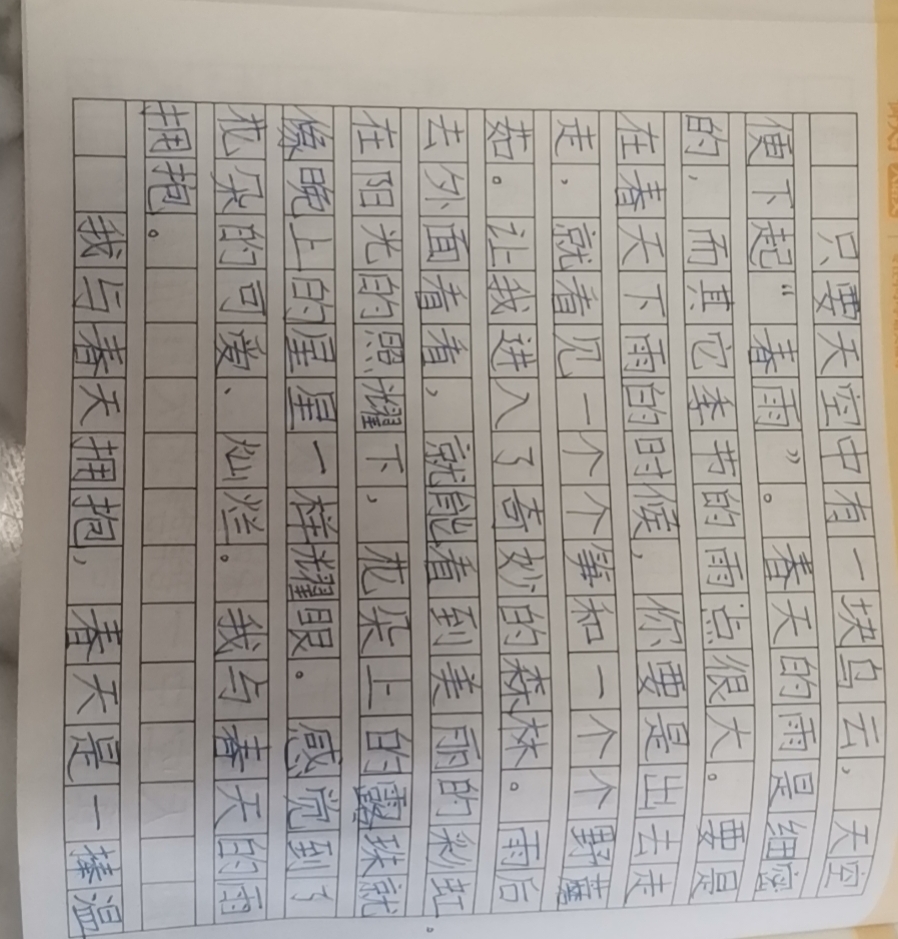 只要天空中有一块乌云，天空
便下起“春雨”。春天的雨是细密
的，而其它季节的雨点很大。要是
在春天下雨的时候，你要是出去走
走，就看见一个个笋和一个个野蘑
菇。让我进入了奇妙的森林。雨后
去外面看看，就能看到美丽的彩虹。
在阳光的照耀下，花朵上的露珠就
像晚上的星星一样耀眼。感觉到了
花朵的可爱、灿烂。我与春天的雨
拥抱。
我与春天拥抱，春天是一捧温